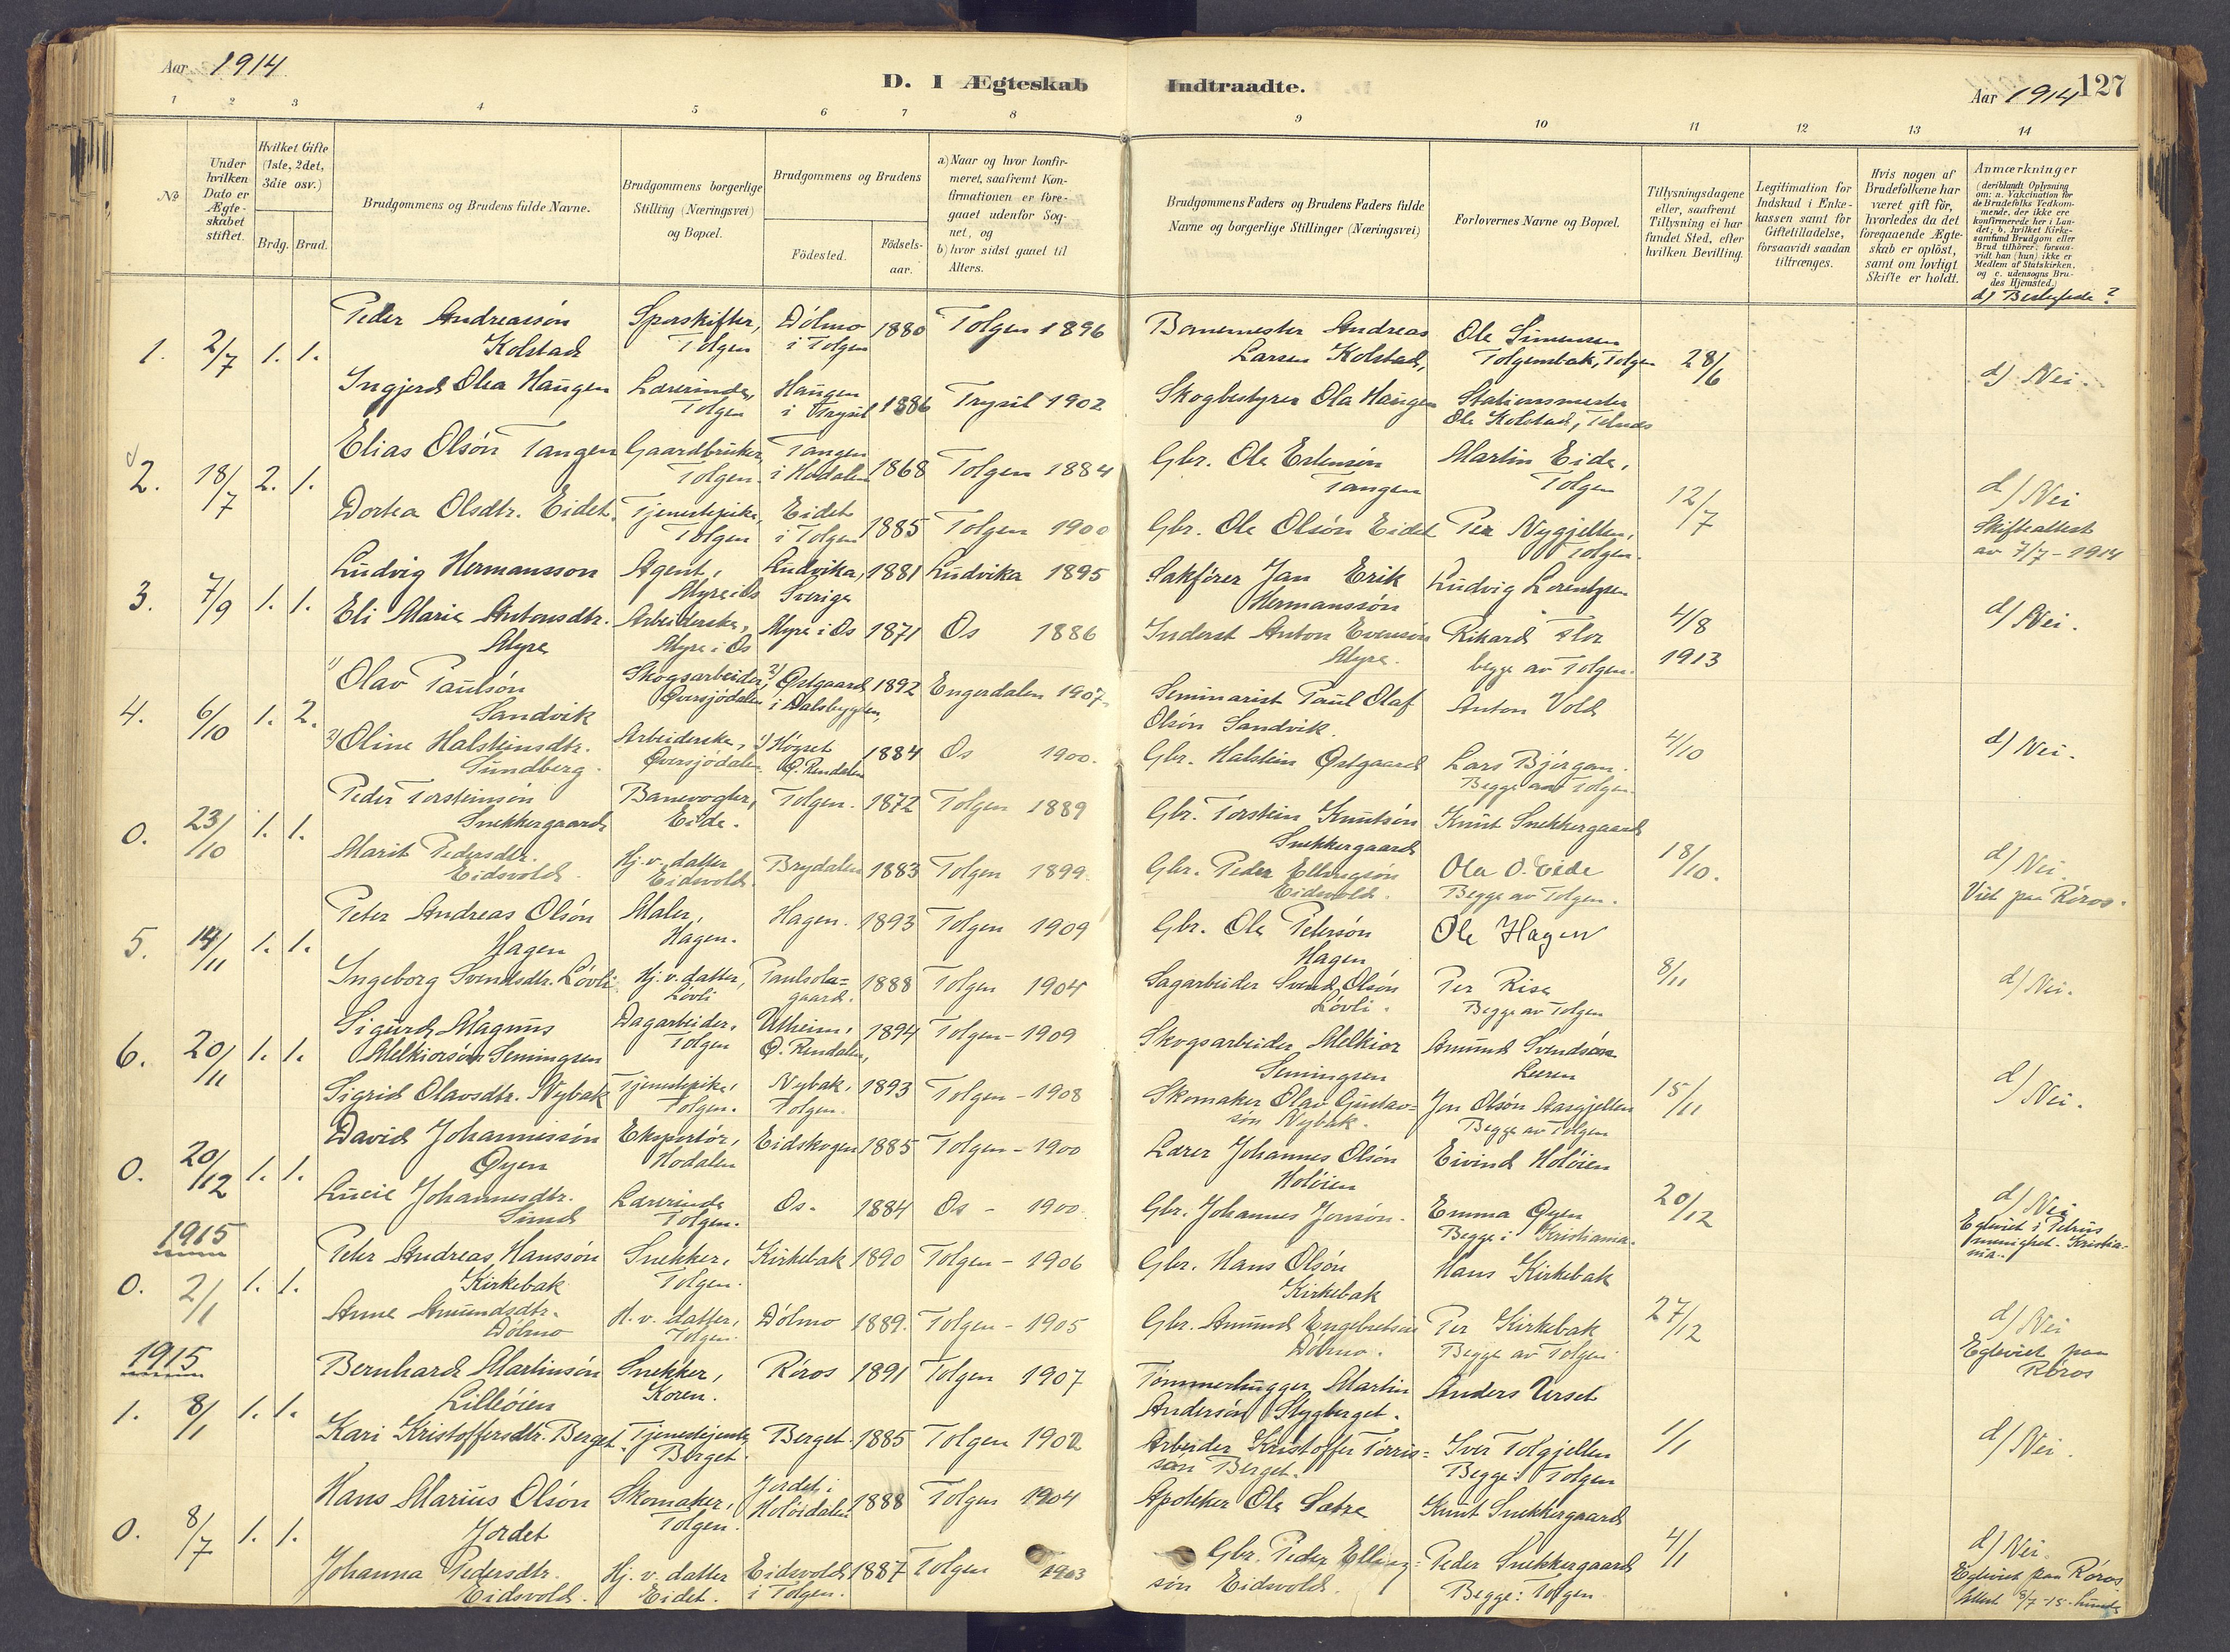 Aar 1914
D. I Ægteskab Indtraadte.
Aar 1914 127
1 2 3 4 5 6 7 8 9 10 11 12 13 14
№
Under hvilken Dato er Ægteskabet stiftet.
Hvilket Gifte (1ste, 2det, 3die osv.)
Brdg. Brud.
Brudgommens og Brudens fulde Navne.
Brudgommens borgerlige Stilling (Næringsvei) og Bopæl.
Brudgommens og Brudens
Fødested.
Fødselsaar.
a) Naar og hvor konfirmeret, saafremt Konfirmationen er foregaaet udenfor Sognet, og
b) hvor sidst gaaet til Alters.
Brudgommens Faders og Brudens Faders fulde Navne og borgerlige Stillinger (Næringsvei)
Forlovernes Navne og Bopæl.
Tillysningsdagene eller, saafremt Tillysning ei har fundet Sted, efter hvilken Bevilling.
Legitimation for Indskud i Enkekassen samt for Giftetilladelse, forsaavidt saadan tiltrænges.
Hvis nogen af Brudefolkene har været gift før, hvorledes da det foregaaende Ægteskab er opløst, samt om lovligt Skifte er holdt.
Anmærkninger (deriblandt Oplysning om: a. Vakcination for de Brudefolks Vedkommende, der ikke ere konfirmerede her i Landet; b. hvilket Kirkesamfund Brudgom eller Brud tilhører, forsaavidt han (hun) ikke er Medlem af Statskirken, og c. udensogns Brudes Hjemsted.)
d) Beslegtede?
1. 2/7 1. 1. Peder Andreassön Kolstad Sporskifter, Tolgen Dölmo i Tolgen 1880 Tolgen 1896 Banemester Andreas Larsen Kolstad, Ole Simensen Tolgensbak, Tolgen 28/6 d) Nei.
Ingjerd Olea Haugen Lærerinde, Tolgen Haugen i Trysil 1886 Trysil 1902 Skogbestyrer Ola Haugen Stationsmester Ole Kolstad, Telnes
2. 18/7 2. 1. Elias Olsön Tangen Gaardbruker, Tolgen. Tangen i Hodalen 1868 Tolgen 1884 Gbr. Ole Estensön Tangen Martin Eide, Tolgen 12/7 d) Nei
Dortea Olsdtr. Eidet. Tjenestepike, Tolgen Eidet i Tolgen 1885 Tolgen 1900 Gbr. Ole Olsön Eidet Per Nygjelten, Tolgen. Skifteattest av 7/7-1914
3. 7/9 1. 1. Ludvig Hermansson Agent, Myre i Os Ludvika, Sverige 1881 Ludvika 1895 Sakförer Jan Erik Hermanssön Ludvig Lorentzen 4/8 1913 d) Nei.
Eli Marie Antonsdtr. Myre Arbeiderske, Myre i Os Myre i Os 1871 Os 1886 Inderst Anton Evensön Myre. Rikard Flor begge av Tolgen.
4. 6/10 1. 2. 1) Olav Paulsön Sandvik Skogsarbeider, Øversjödalen 2) Østgaard i Dalsbygden, 1892 Engerdalen 1907. Seminarist Paul Olaf Olsön Sandvik. Anton Vold 4/10 d) Nei.
2) Oline Halsteinsdtr. Sundberg. Arbeiderske, Øversjödalen. 1) Høgset Ø. Rendalen 1884 Os 1900. Gbr. Halstein Østgaard Lars Bjørgan. Begge av Tolgen.
0. 23/10 1. 1. Peder Torsteinsön Snekkergaard Banevogter, Eide. Tolgen. 1872 Tolgen 1889 Gbr. Torstein Knutsön Snekkergaard Knut Snekkergaard 18/10. d) Nei.
Marit Pedersdtr. Eidsvold. Hj.v. datter Eidsvold. Brydalen 1883 Tolgen 1899. Gbr. Peder Ellingsön Eidsvold. Ola O. Eide Begge av Tolgen. Viet paa Röros.
5. 14/11 1. 1. Peter Andreas Olsön Hagen Maler, Hagen. Hagen. 1893 Tolgen 1909 Gbr. Ole Petersön Hagen Ole Hagen 8/11 d) Nei.
Ingeborg Svendsdtr. Lövli Hj.v. datter, Lövli Paulsolagaard. 1888 Tolgen 1904 Sagarbeider Svend Olsön Lövli. Per Rise Begge av Tolgen
6. 20/11 1. 1. Sigurd Magnus Melkiorsön Semingsen Dagarbeider, Tolgen Utheim, Ø. Rendalen, 1894 Tolgen - 1909 Skogsarbeider Melkior Semingsen Amund Svendsøn Leeren 15/11 d) Nei.
Sigrid Olavsdtr. Nybak Tjenestepike, Tolgen. Nybak, Tolgen. 1893 Tolgen - 1908 Skomaker Olav Gustavsön Nybak. Jon Olsön Aasgjelten Begge av Tolgen
0. 20/12 1. 1. David Johannessön Øyen Ekspeditör, Hodalen Eidskogen 1885 Tolgen - 1900 Lærer Johannes Olsön Holöien Eivind Holöien 20/12 d) Nei
Lucie Johannesdtr. Sund Lærerinde Tolgen. Os. 1884 Os - 1900. Gbr. Johannes Jonsön. Emma Øyen Begge i Kristiania. Egteviet i Petrus menighet. Kristiania.
1915
0. 2/1 1. 1. Peter Andreas Hanssön Kirkebak Snekker, Tolgen. Kirkebak 1890 Tolgen - 1906 Gbr. Hans Olsön Kirkebak Hans Kirkebak 27/12 d) Nei
Anne Amundsdtr. Dölmo H.v. datter, Tolgen. Dölmo 1889. Tolgen - 1905 Gbr. Amund Engebretsön Dölmo. Per Kirkebak Begge av Tolgen. Egteviet paa Röros
1915
1. 8/1 1. 1. Bernhard Martinsön Lilleöien Snekker, Koren. Röros 1891 Tolgen 1907 Tömmerhugger Martin Andersön Stygberget. Anders Urset 1/1 d) Nei.
Kari Kristoffersdtr. Berget Tjenestejente, Berget. Berget. 1885 Tolgen 1902 Arbeider Kristoffer Törrissön Berget. Iver Tolgjellen Begge i Tolgen
0. 8/7 1. 1. Hans Marius Olsön Jordet Skomaker, Tolgen. Jordet i Holöidalen 1888 Tolgen 1904 Apoteker Ole Sætre Knut Snekkergaard 4/1 d) Nei.
Johanna Pedersdtr. Eidsvold. Hj.v. datter Eidet. Eidsvold i Tolgen. 1887 Tolgen 1903 Gbr. Peder Ellingsön Eidsvold. Peder Snekkergaard Begge i Tolgen Egteviet paa Röros Attest 8/7-15.